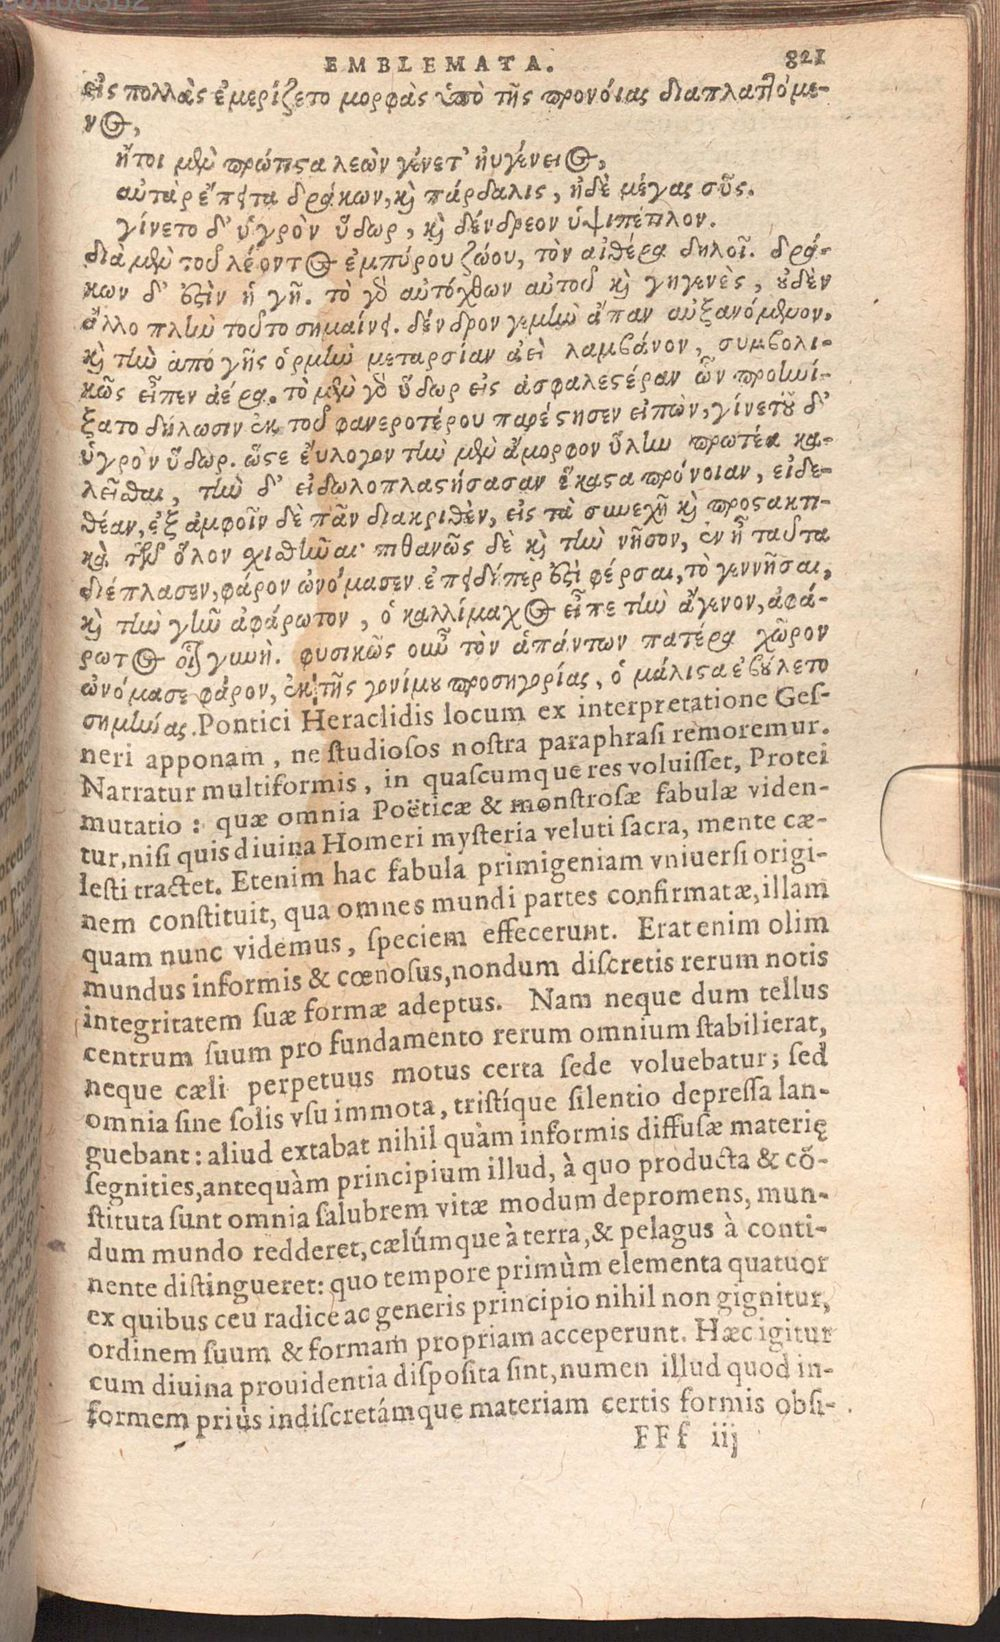 EMBLEMATA. 821
εἰς πολλὰς ἐμερίζετο μορφὰς ὑπὸ τῆς προνοίας διαπλαττόμε-
νος,
ἤτοι μὲν πρώτιστα λεὼν γένετ' ἠυγένειος,
αὐτὰρ ἔπειτα δράκων, καὶ πάρδαλις, ἠδὲ μέγας σῦς.
γίνετο δ' ὑγρὸν ὕδωρ, καὶ δένδρεον ὑψιπέτηλον.
διὰ μὲν τοῦ λέοντος ἐμπύρου ζώου, τὸν αἰθέρα δηλοῖ. δρά-
κων δ' ἐστὶν ἡ γῆ. τὸ γὰρ αὐτόχθων αὐτοῦ καὶ γηγενὲς, οὐδὲν
ἄλλο πλὴν τοῦτο σημαίνει. δένδρον γεμὴν ἅπαν αὐξανόμενον.
καὶ τὴν ἀπὸ γῆς ὁρμὴν μεταρσίαν ἀεὶ λαμβάνον, συμβολι-
κῶς εἶπεν ἀέρα. τὸ μὲν γὰρ ὕδωρ εἰς ἀσφαλεστέραν ὧν προῃνί-
ξατο δήλωσιν ἐκ τοῦ φανεροτέρου παρέστησεν εἰπὼν, γίνετο δ'
ὑγρὸν ὕδωρ. ὥστε εὔλογον τὴν μὲν ἄμορφον ὕλην πρωτέα κα-
λεῖσθαι, τὴν δ' εἰδωλοπλαστήσασαν ἕκαστα πρόνοιαν, εἰδο-
θέαν, ἐξ ἀμφοῖν δὲ πᾶν διακριθὲν, εἰς τὰ συνεχῆ καὶ προςακτι-
κὰ τῶν ὅλον χισθῆναι· πιθανῶς δὲ καὶ τὴν νῆσον, ἐν ᾗ ταῦτα
διέπλασεν, φάρον ὠνόμασεν ἐπειδήπερ ἐστὶ φέρσαι, τὸ γεννῆσαι,
καὶ τὴν γῆν ἀφάρωτον, ὁ καλλίμαχος εἶπε τὴν ἄγονον, ἀφά-
ρωτος οἷον γυνή. φυσικῶς οὖν τὸν ἁπάντων πατέρα χῶρον
ὠνόμασε φάρον, ἐκ τῆς γονίμου προσηγορίας, ὁ μάλιστα ἐβούλετο
σημῄας. Pontici Heraclidis locum ex interpretatione Geſ-
neri apponam, ne ſtudioſos noſtra paraphraſi remoremur.
Narratur multiformis, in quaſcumque res voluiſſet, Protei
mutatio: quæ omnia Poëticæ & monſtroſæ fabulæ viden-
tur, niſi quis diuina Homeri myſteria veluti ſacra, mente cæ-
leſti tractet. Etenim hac fabula primigeniam vniuerſi origi-
nem conſtituit, qua omnes mundi partes confirmatæ, illam
quam nunc videmus, ſpeciem effecerunt. Erat enim olim
mundus informis & cœnoſus, nondum diſcretis rerum notis
integritatem ſuæ formæ adeptus. Nam neque dum tellus
centrum ſuum pro fundamento rerum omnium ſtabilierat,
neque cæli perpetuus motus certa ſede voluebatur; ſed
omnia ſine ſolis vſu immota, triſtíque ſilentio depreſſa lan-
guebant: aliud extabat nihil quàm informis diffuſæ materię
ſegnities, antequàm principium illud, à quo producta & cõ-
ſtituta ſunt omnia ſalubrem vitæ modum depromens, mun-
dum mundo redderet, cælúmque à terra, & pelagus à conti-
nente diſtingueret: quo tempore primùm elementa quatuor
ex quibus ceu radice ac generis principio nihil non gignitur,
ordinem ſuum & formam propriam acceperunt. Hæc igitur
cum diuina prouidentia diſpoſita ſint, numen illud quod in-
formem priùs indiſcretámque materiam certis formis obſi-
FFf iij